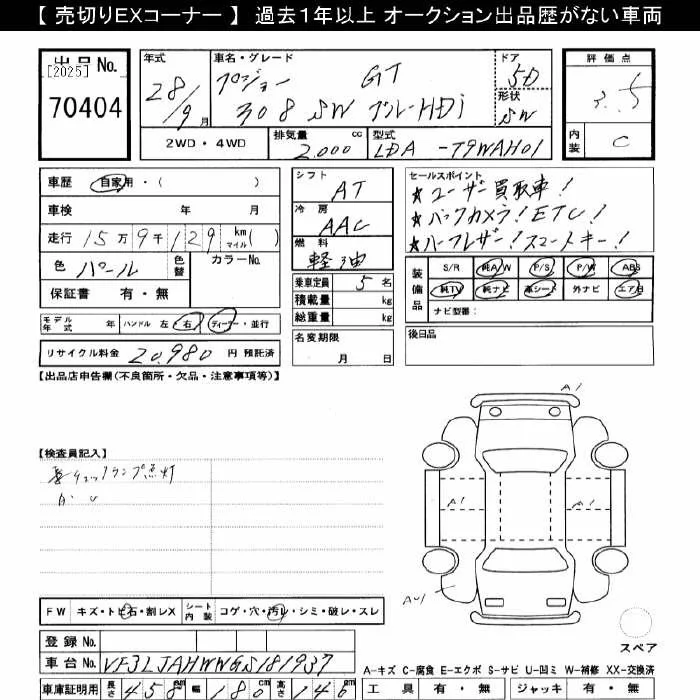 【 売切りEXコーナー 】 過去１年以上 オークション出品歴がない車両
出品 No.
[2025]
70404
年式
28/9月
車名・グレード
プジョー GT
308 SW ブルーHDi
ドア
5D
形状
SW
評価点
3.5
内装
C
2WD・4WD
排気量
2,000 cc
型式
LDA -T9WAH01
車歴 自家用・( )
車検 年 月
走行 15万9千129 km マイル( )
色 パール 色替
カラーNo.
保証書 有・無
モデル年式 年
ハンドル 左・右
ディーラー・並行
リサイクル料金 20,980 円 預託済
シフト
AT
冷房
AAC
燃料
軽油
乗車定員 5 名
積載量 kg
総重量 kg
名変期限
月 日
セールスポイント
★ユーザー買取車!
★バックカメラ!ETC!
★ハーフレザー!スマートキー!
装備品
S/R 純A/W P/S P/W ABS
純TV 純ナビ 革シート 外ナビ エアB
ナビ型番:
後日品
【出品店申告欄(不良箇所・欠品・注意事項等)】
【検査員記入】
点灯
A1
A1
A1
AU1
FW キズ・トビ石・割レX
シート内装 コゲ・穴・汚レ・シミ・破レ・スレ
登録 No.
車台 No. VF3LJAHWWGS181937
車庫証明用 長さ 458 幅 180 高さ 146
スペア
A-キズ C-腐食 E-エクボ S-サビ U-凹ミ W-補修 XX-交換済
工具 有・無
ジャッキ 有・無